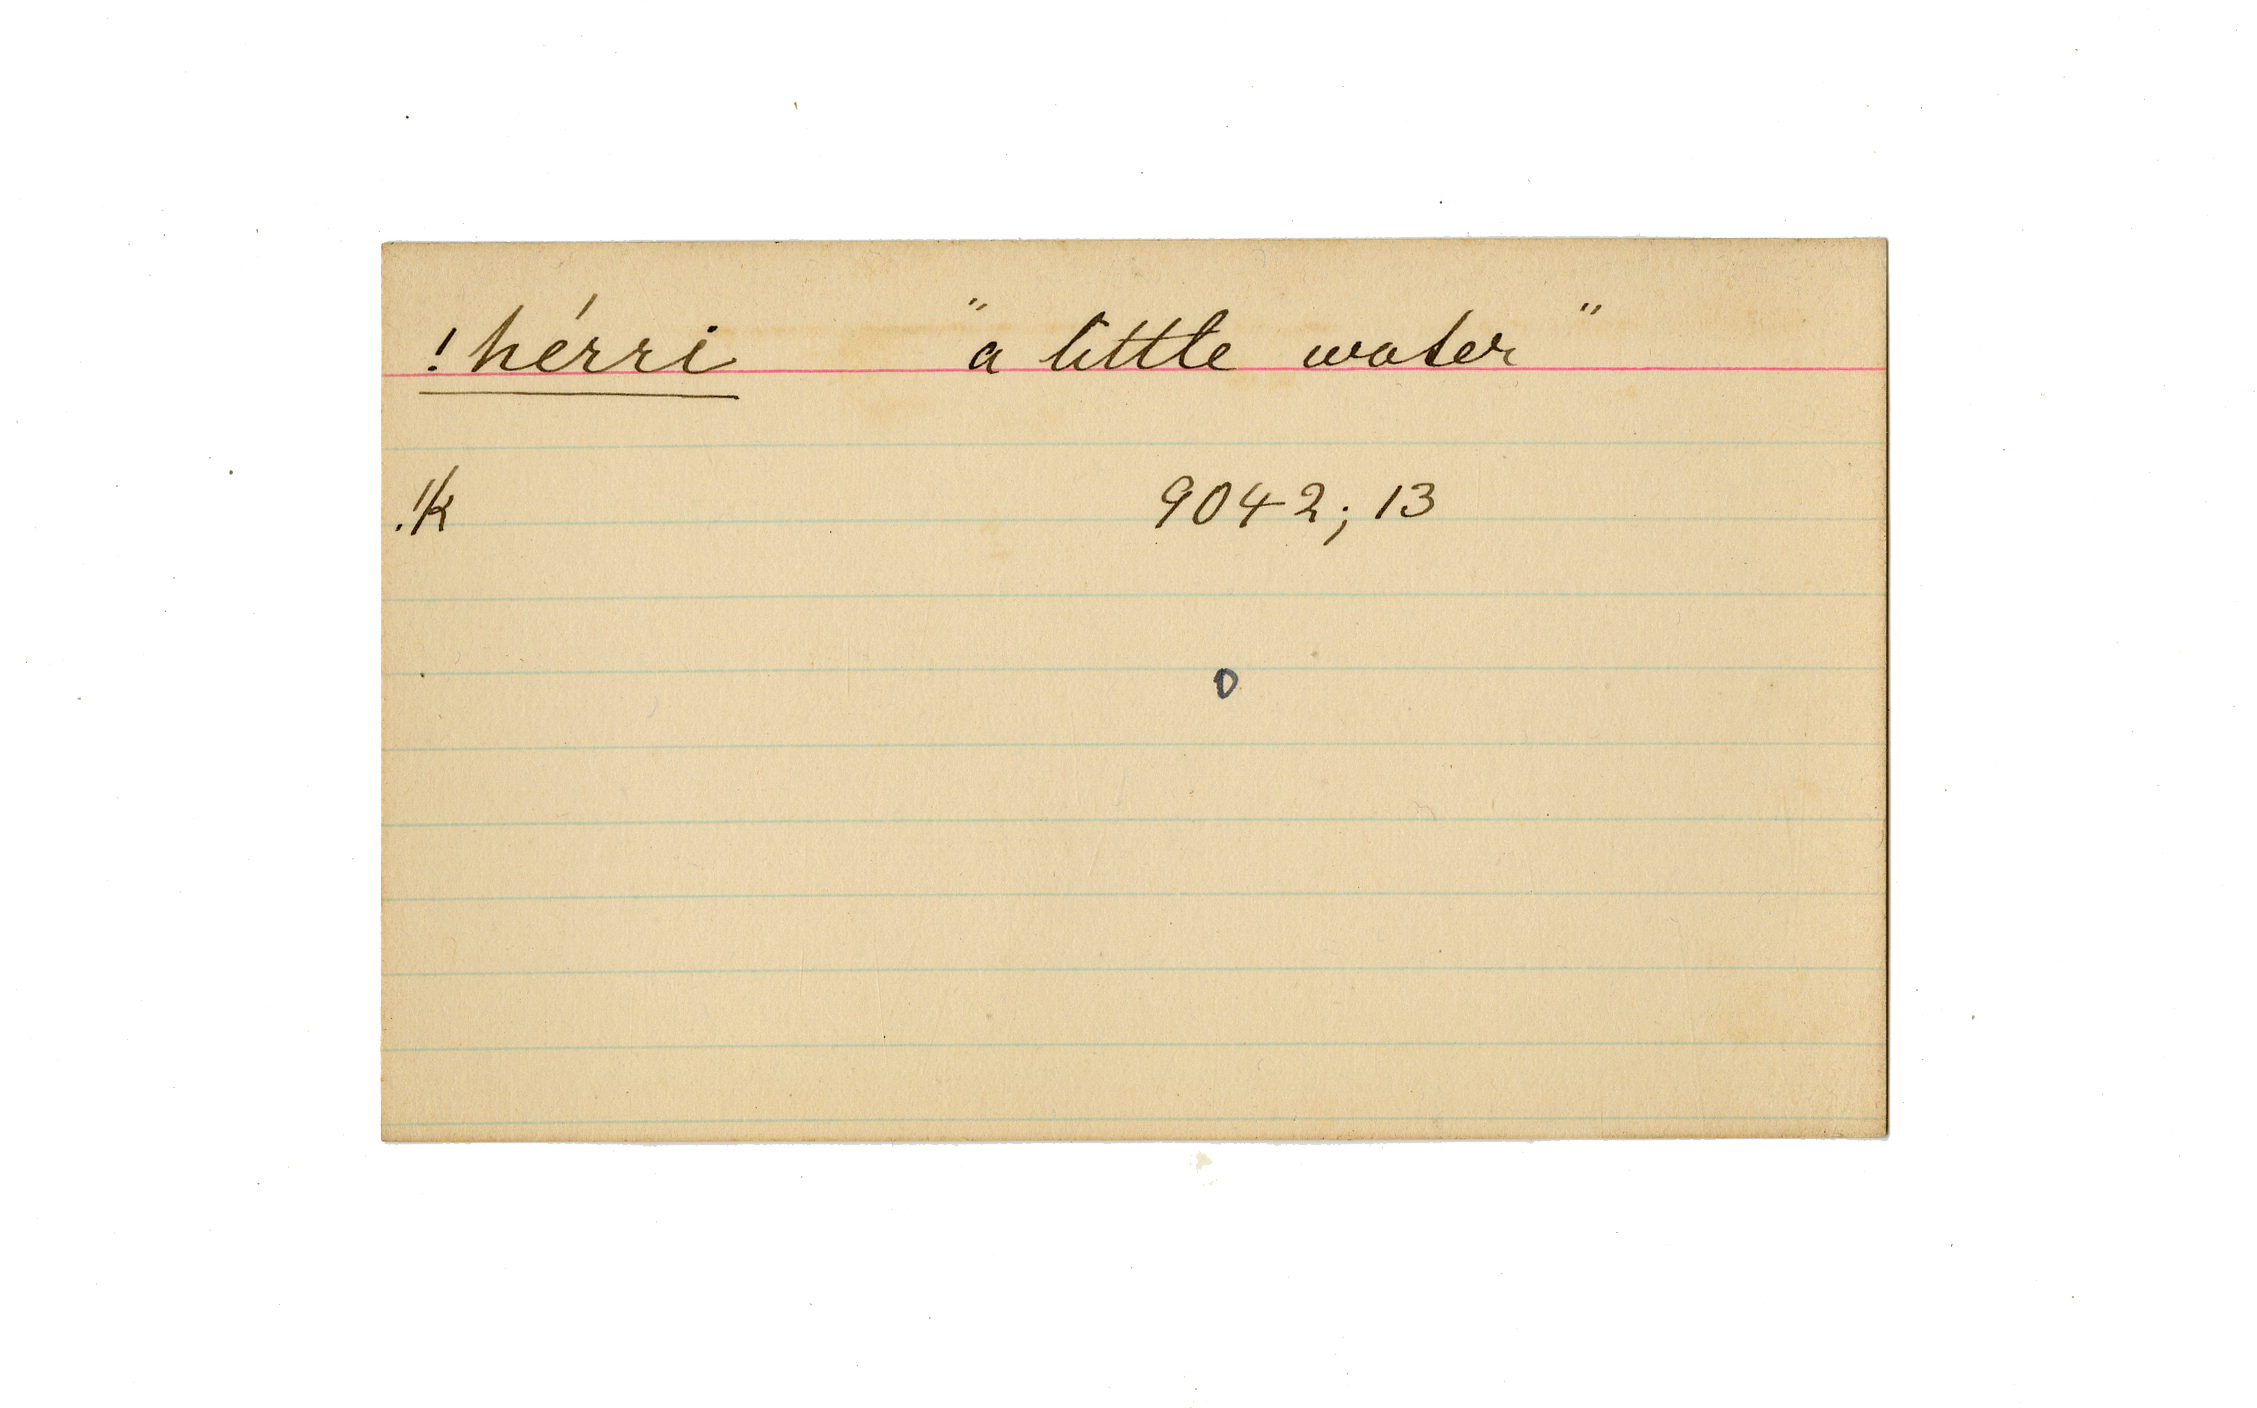 !hérri "a little water"
!k 9042; 13
D